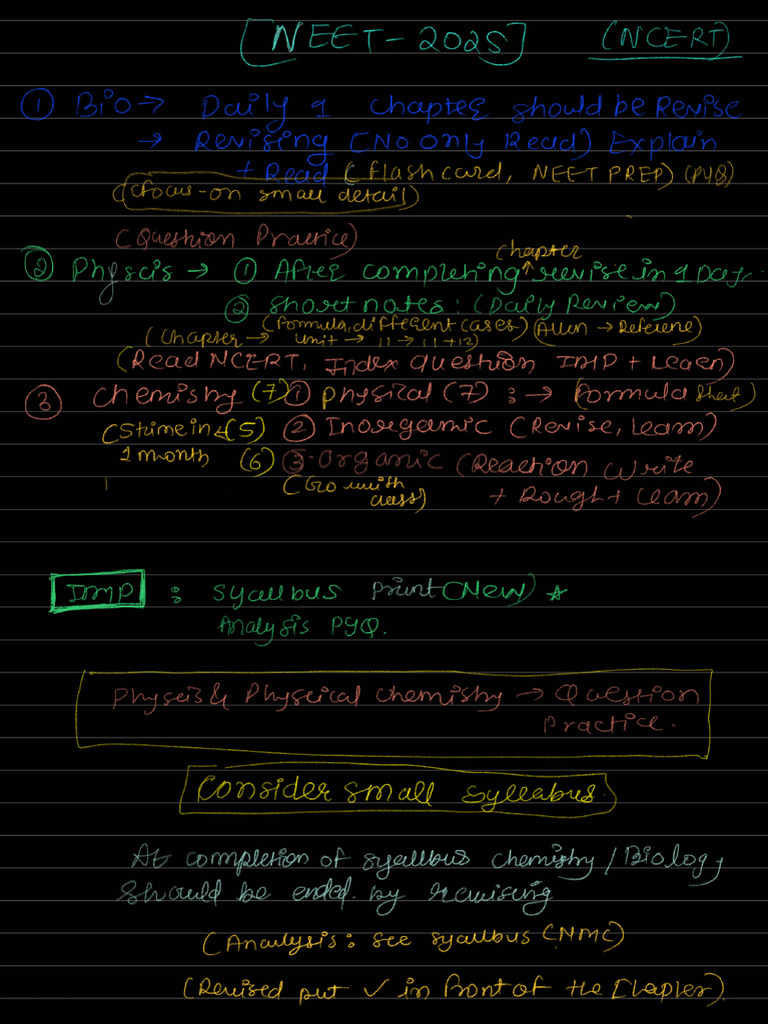 [NEET-2025] (NCERT)
① Bio → Daily 1 chapter should be Revise
→ Revising (No only Read) Explain
+ Read (flash card, NEET PREP) (PYQ)
(focus-on small detail)
(Question Practice)
chapter
② Physcis → ① After completing ↑ revise in 1 Day.
② short notes: (Daily Review)
(formula, different cases) (Allen → Reference)
(Chapter → unit → 11 → 11+12)
(Read NCERT, Index question IMP + Learn)
③ Chemisty (7) ① physical (7) : → (formula sheet)
(5) ② Inorgamic (Revise, Learn)
1 month (6) ③ - Organic (Reaction write
(Go with class) + Rough + Learn)
IMP : syallbus print (New) ☆
Analysis PYQ.
Physcis & Physcical chemisty → Question
Practice.
Consider small syllabus.
At completion of syallbus chemisty / Biology
should be ended by revising
(Analysis: see syallbus (NMC)
(Revised put ✓ in front of the Chapter).